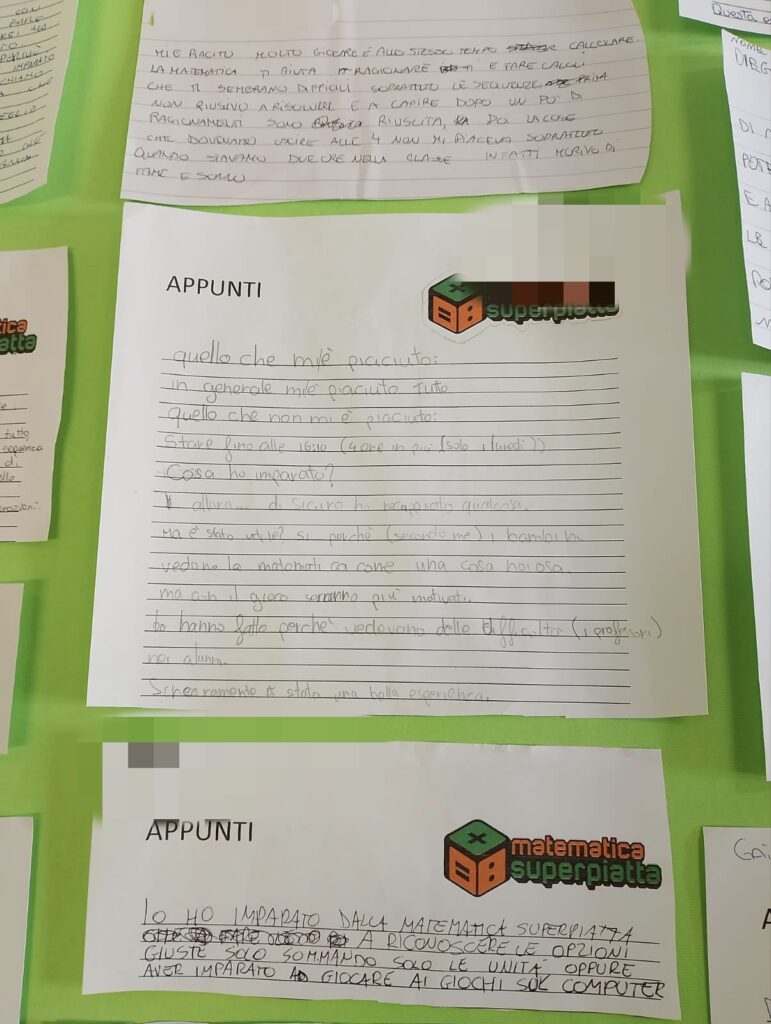 Questa e
NOME
DIEG
MI E PIACIUTO MOLTO GIOCARE E ALLO STESSO TEMPO CALCOLARE
LA MATEMATICA TI AIUTA RAGIONARE E FARE CALCOLI
CHE TI SEMBRANO DIFFICILI SOPRATUTTO LE SEQUENZE PRIMA
NON RIUSIVO A RISOLVERE E A CAPIRE DOPO UN PO' DI
RAGIONAMENTI SONO RIUSCITA, POI LA COSE
CHE DOVEVAMO USCIRE ALLE 4 NON MI PIACEVA SOPRATUTTO
QUANDO STAVAMO DUE ORE NELLA CLASSE INFATTI MORIVO DI
FAME E SONNO
APPUNTI
superpiatto
quello che mi è piaciuto:
in generale mi è piaciuto tutto
quello che non mi è piaciuto:
Stare fino alle 16:10 (4 ore in più (solo i lunedì))
Cosa ho imparato?
allora... di sicuro ho recuperato qualcosa.
Ma è stato utile? si perchè (secondo me) i bambini
vedono la matematica come una cosa noiosa.
ma con il gioco saranno più motivati.
Lo hanno fatto perchè vedevano delle difficoltà (i professori)
nei alunni.
Sinceramente è stata una bella esperienza.
APPUNTI
matematica
superpiatta
IO HO IMPARATO DALLA MATEMATICA SUPERPIATTA
A RICONOSCERE LE OPZIONI
GIUSTE SOLO SOMMANDO SOLO LE UNITÀ, OPPURE
AVER IMPARATO A GIOCARE AI GIOCHI SUL COMPUTER